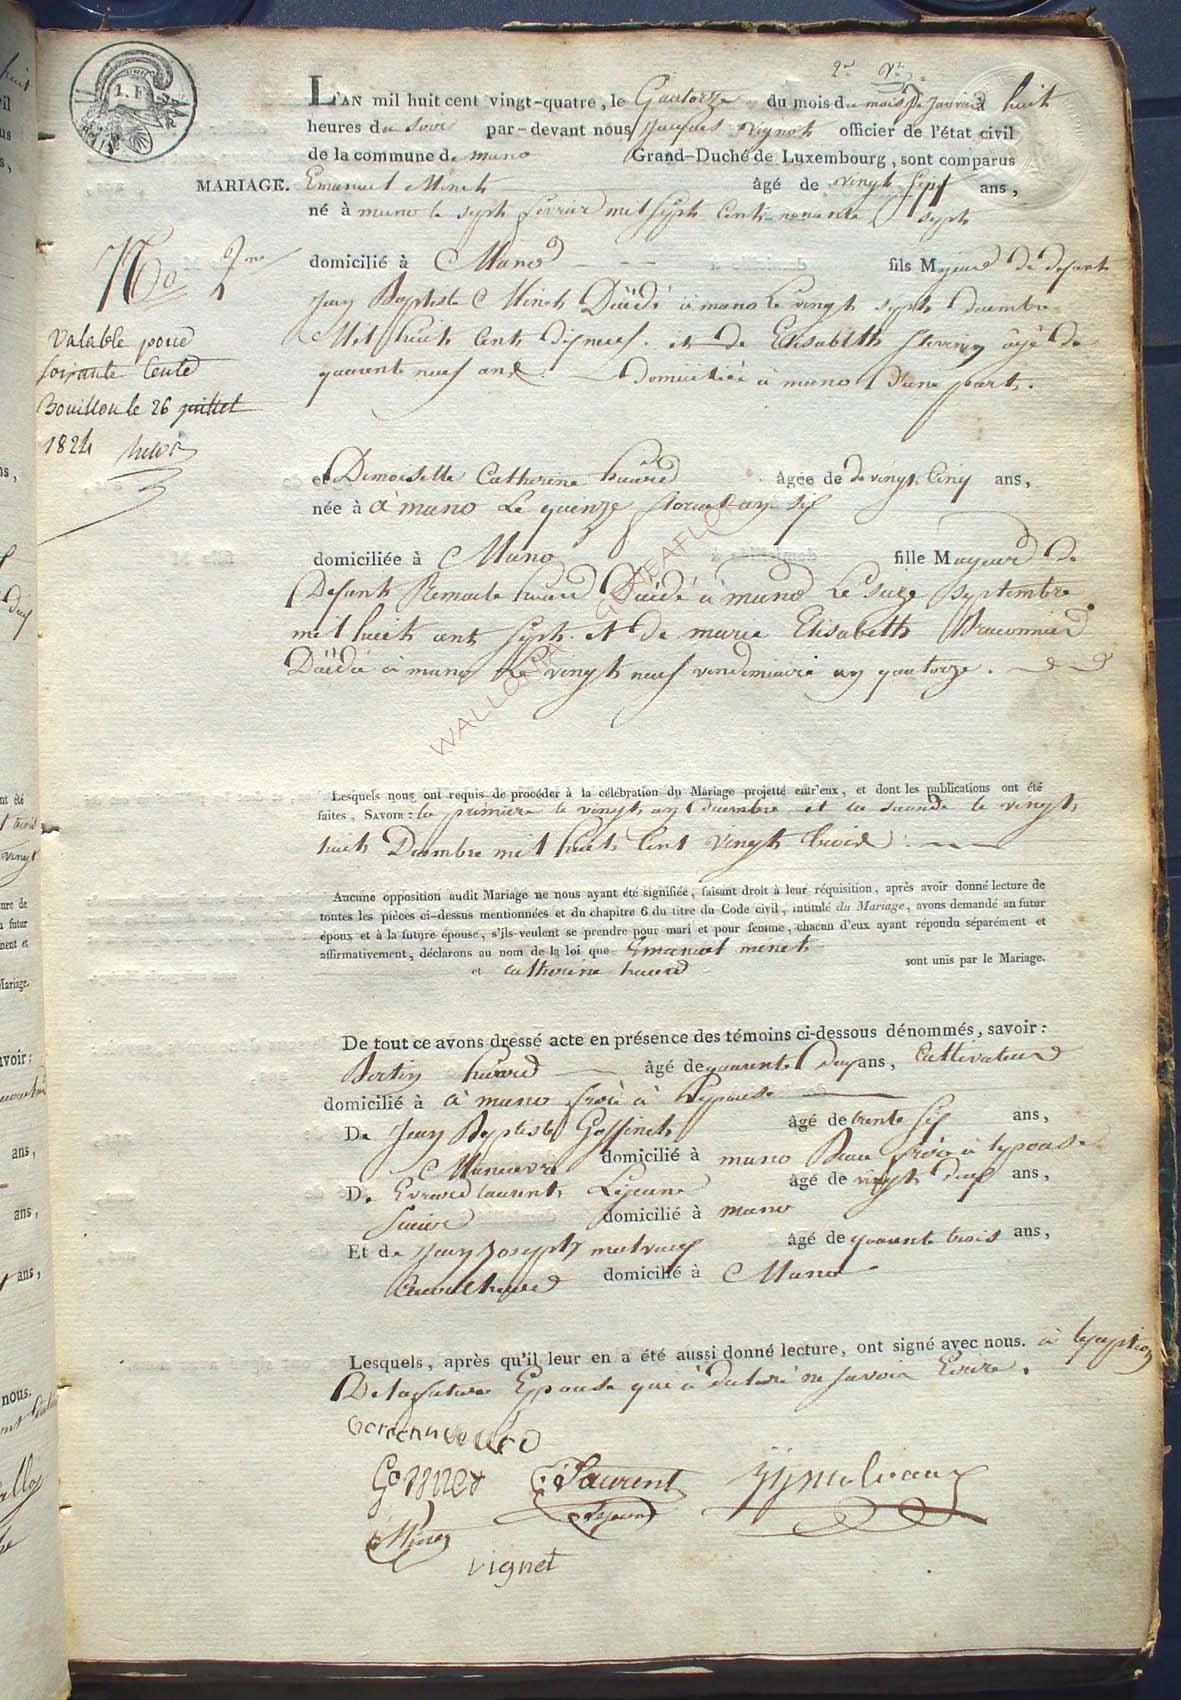 1. F.
L'AN mil huit cent vingt-quatre, le Quatorze du mois du mois De Janvier à huit
heures du soir par-devant nous Jacques Vignet officier de l'état civil
de la commune de muno Grand-Duché de Luxembourg, sont comparus
MARIAGE. Emanuel Minet âgé de vingt Sept ans,
né à muno le sept fevrier mil sept cent nonante sept
No 2me
domicilié à Muno fils Majeur de defunt
Jean Baptiste Minet Dćédé à muno le vingt sept decembre
Mil huit Cent dix neuf. et de Elisabeth agé de
quarente neuf ans domicilié à muno d'une part.
Valable pour
soixante Cents
Bouillon le 26 juillet
1824
et Demoiselle Catherine huard âgée de de vingt Cinq ans,
née à à muno Le quinze floreal an six
domiciliée à Muno fille Majeur de
Defunt Remacle huard Dćédé à muno Le seize septembre
mil huit cent sept. et De marie Elisabeth Braconnier
Dćédée à muno Le vingt neuf vendemiaire an quatorze.
WALLONIA GENEAFLOR ©
Lesquels nous ont requis de procéder à la célébration du Mariage projetté entr'eux, et dont les publications ont été
faites, SAVOIR: la première le vingt un decembre et la seconde le vingt
huit Decembre mil huit Cent vingt trois.
Aucune opposition audit Mariage ne nous ayant été signifiée, faisant droit à leur réquisition, après avoir donné lecture de
toutes les pièces ci-dessus mentionnées et du chapitre 6 du titre du Code civil, intitulé du Mariage, avons demandé au futur
époux et à la future épouse, s'ils veulent se prendre pour mari et pour femme, chacun d'eux ayant répondu séparément et
affirmativement, déclarons au nom de la loi que Emanuel minet
et Catherine huard sont unis par le Mariage.
De tout ce avons dressé acte en présence des témoins ci-dessous dénommés, savoir:
Bertin huard âgé de quarente deux ans, Cultivateur
domicilié à à muno frère à l'epouse
De Jean Baptiste Goffinet âgé de trente six ans,
Maneuvre domicilié à muno Beau frère à l'epouse
De Evrard Laurent Lejeune âgé de vingt deux ans,
domicilié à muno
Et de Jean Joseph melvaux âgé de quarente trois ans,
domicilié à Muno
Lesquels, après qu'il leur en a été aussi donné lecture, ont signé avec nous. à l'exeption
De la future Epouse qui à declaré ne savoir Ecrire.
Laurent
Lejeune
Vignet